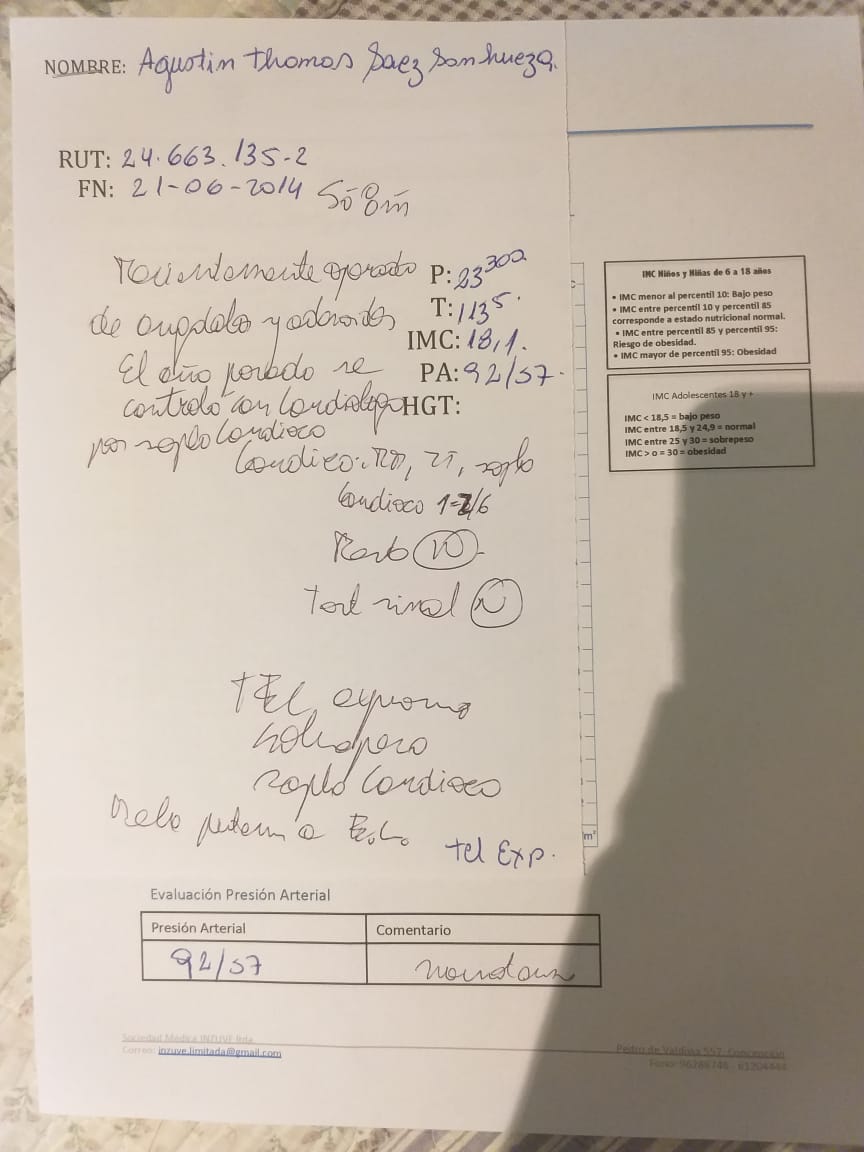 NOMBRE: Agustin Thomas Saez Sanhueza.
RUT: 24.663.135-2
FN: 21-06-2014 5a 8m
Recientemente operado
P: 23300
de amigdalas y adenoides
T: 1135.
IMC: 18,1.
El año pasado se
PA: 92/57.
controló con Cardiologo
HGT:
por soplo Cardiaco
Cardiaco: RR, 2T, soplo
Cardiaco 1-2/6
Resto N
Test visual N
TEL
soplo Cardiaco
Tel Exp.
m²
IMC Niños y Niñas de 6 a 18 años
• IMC menor al percentil 10: Bajo peso
• IMC entre percentil 10 y percentil 85
corresponde a estado nutricional normal.
• IMC entre percentil 85 y percentil 95:
Riesgo de obesidad.
• IMC mayor de percentil 95: Obesidad
IMC Adolescentes 18 y +
IMC < 18,5 = bajo peso
IMC entre 18,5 y 24,9 = normal
IMC entre 25 y 30 = sobrepeso
IMC > o = 30 = obesidad
Evaluación Presión Arterial
Presión Arterial
Comentario
92/57
Sociedad Médica INZUVE ltda.
Correo: inzuve.limitada@gmail.com
Pedro de Valdivia 557, Concepción